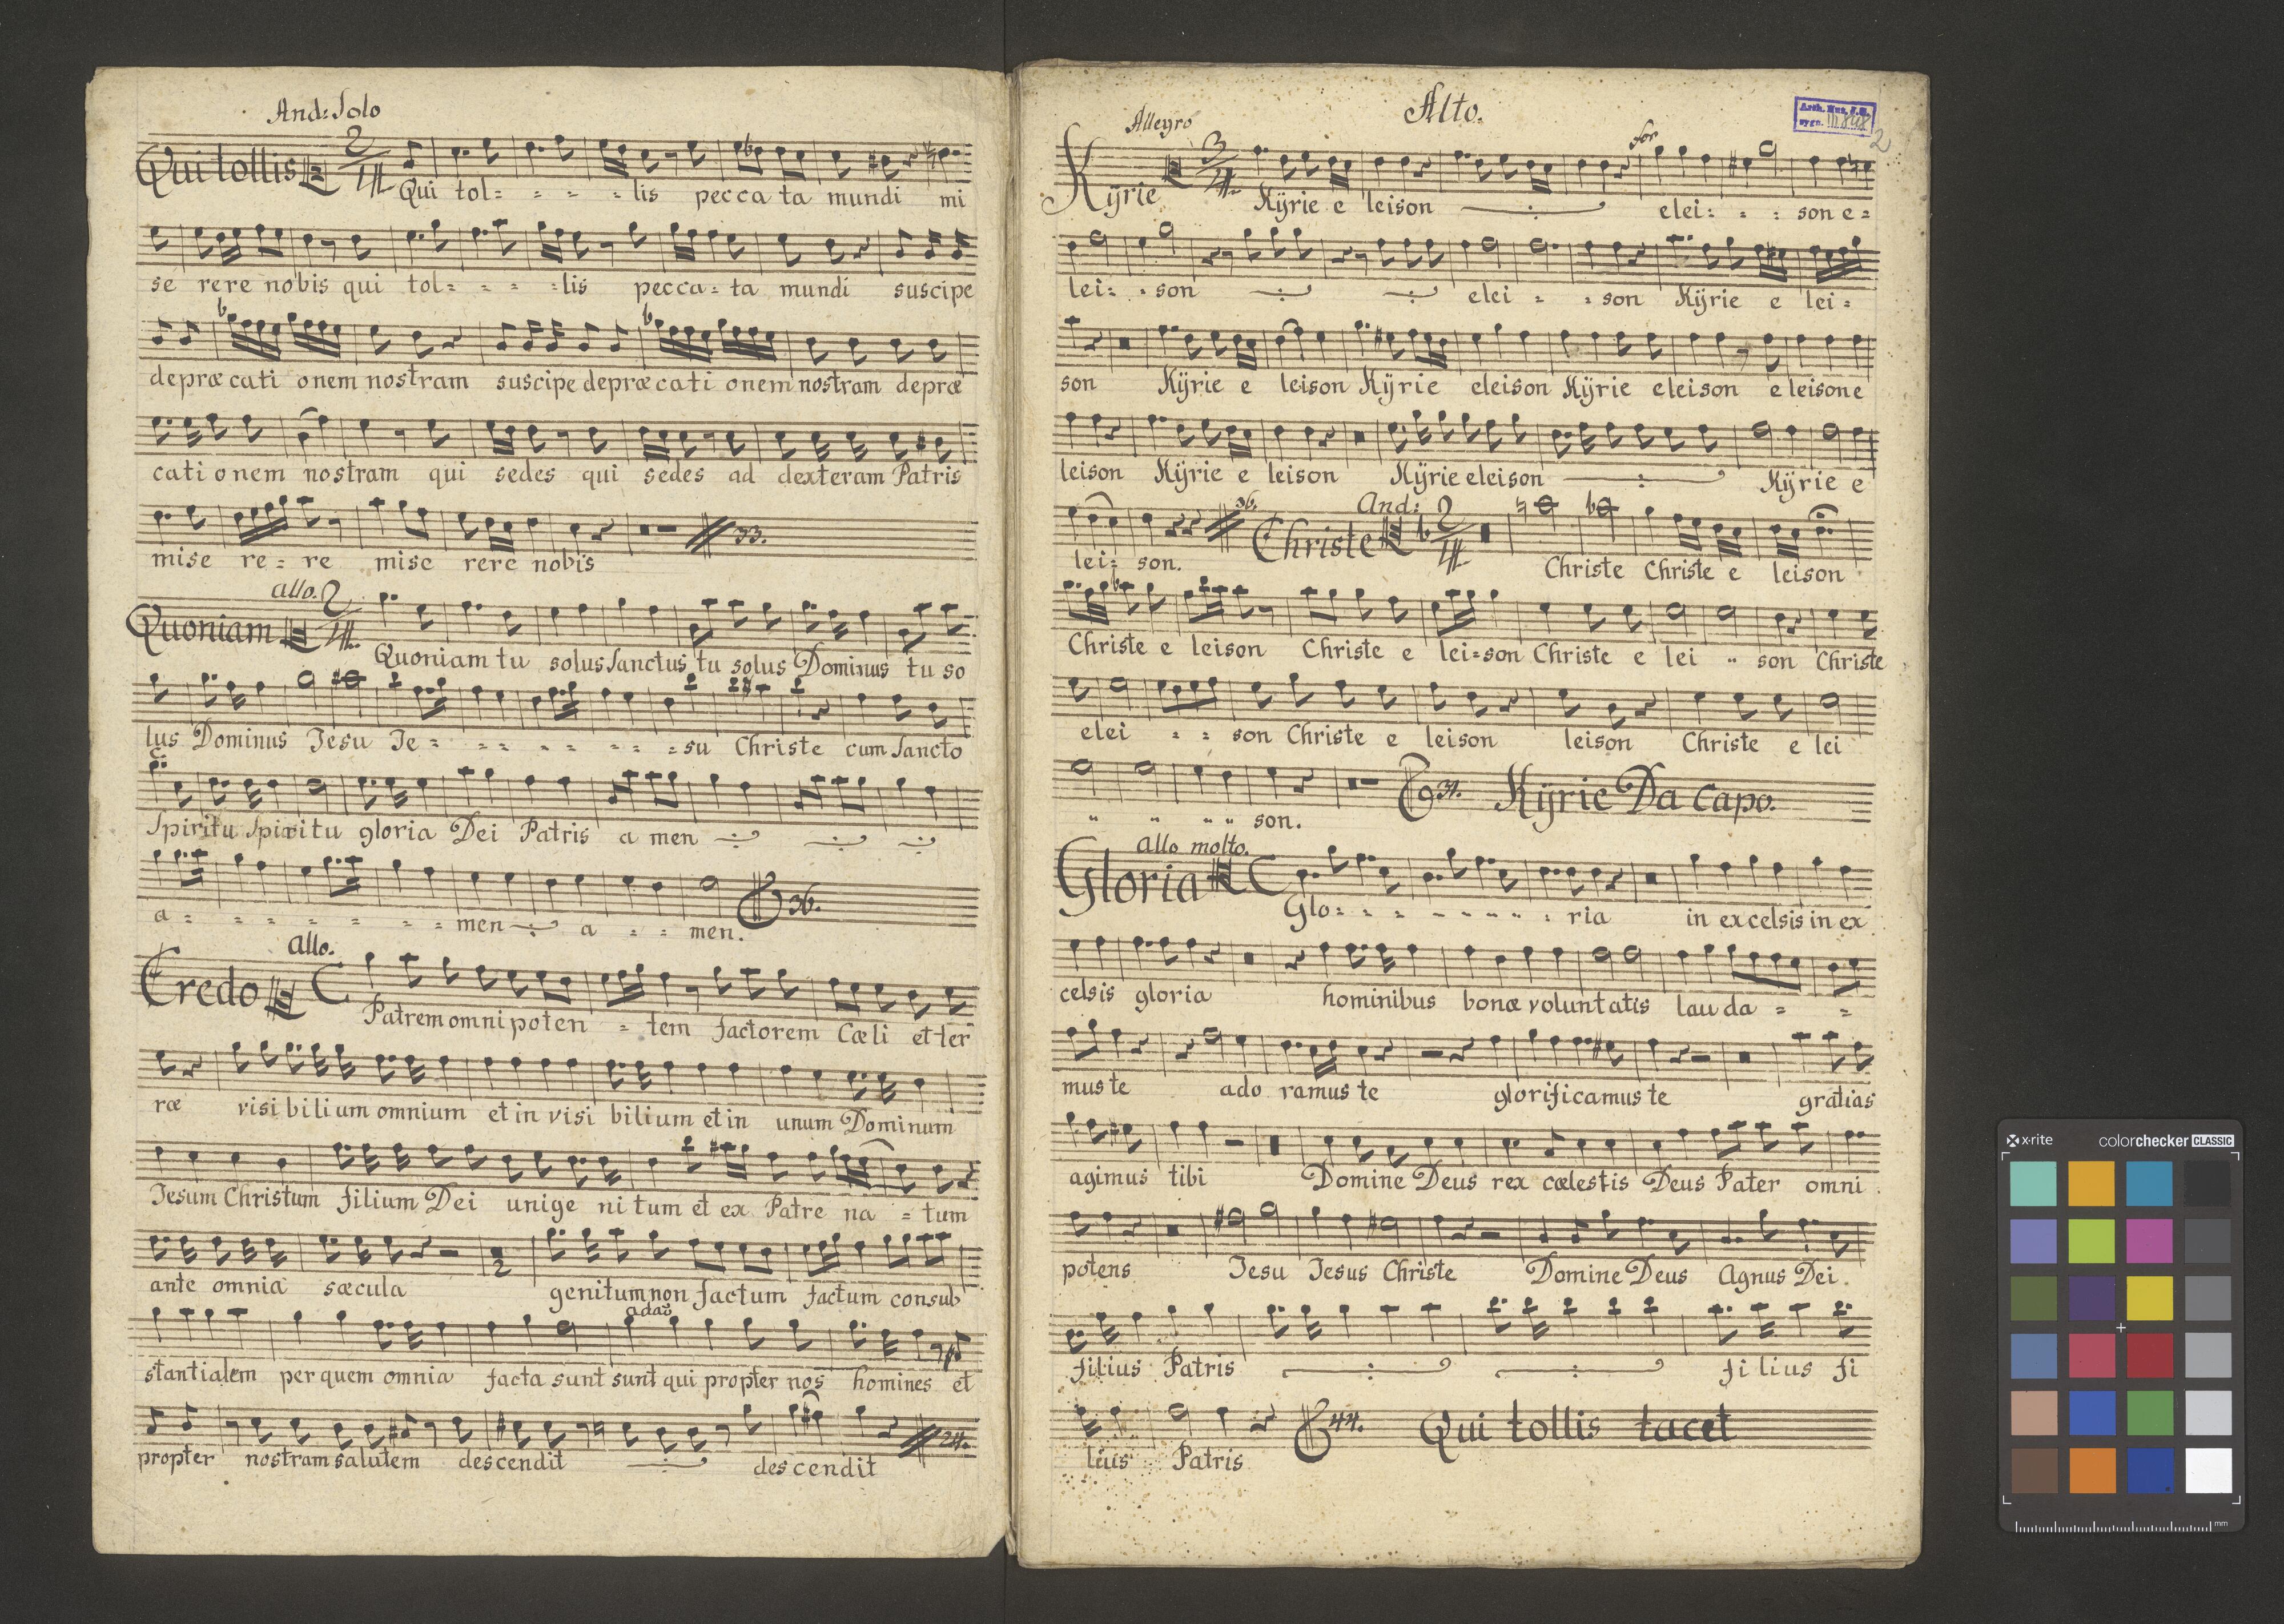 And: Solo
Qui tollis 2/4 Qui tol= = = = lis pecca ta mundi mi
se rere nobis qui tol= = = = lis pecca= ta mundi suscipe
depræ cati onem nostram suscipe depræ cati onem nostram depræ
cati onem nostram qui sedes qui sedes ad dexteram Patris
mise re= re mise rere nobis 33.
allo.
Quoniam 2/4 Quoniam tu solus Sanctus tu solus Dominus tu so
lus Dominus Jesu Je= = = = = = = = su Christe cum Sancto
Spiritu Spiritu gloria Dei Patris a men
a= = = = = = = men a = = men. 36.
allo.
Credo C Patrem omnipoten = tem factorem Cœli et ter
ræ visibilium omnium et in visi bilium et in unum Dominum
Jesum Christum filium Dei unige ni tum et ex Patre na = tum
ante omnia sæcula 2 genitum non factum factum consub
adao
stantialem per quem omnia facta sunt sunt qui propter nos homines et
propter nostram salutem descendit descendit 24.
Alto.
Arch. Muz. J.G.
sygn. III
2
Allegro
for
Kÿrie 3/4 Kÿrie e leison elei: = : son e=
lei: = son elei = = son Kÿrie e lei=
son Kÿrie e leison Kÿrie eleison Kÿrie eleison e leison e
leison Kÿrie e leison Kÿrie eleison Kÿrie e
36. And:
lei= son. Christe 2/4 Christe Christe e leison
Christe e leison Christe e lei=son Christe e lei " son Christe
elei = = son Christe e leison leison Christe e lei
" " " " son. 91. Kÿrie Da Capo.
allo molto.
Gloria C Glo= = = = = = = = ria in excelsis in ex
celsis gloria hominibus bonæ voluntatis lauda= =
mus te ado ramus te glorificamus te gratias
agimus tibi Domine Deus rex cœlestis Deus Pater omni
potens Jesu Jesus Christe Domine Deus Agnus Dei.
filius Patris fi lius fi
lius Patris 44. Qui tollis tacet
x-rite colorchecker CLASSIC
mm